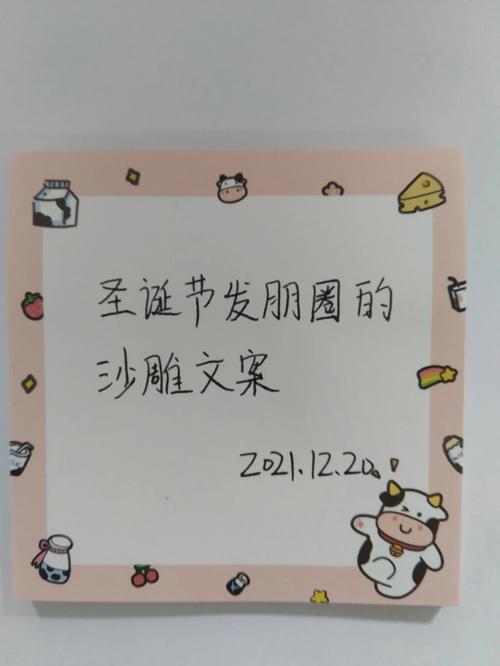 圣诞节发朋圈的
沙雕文案
2021.12.20.